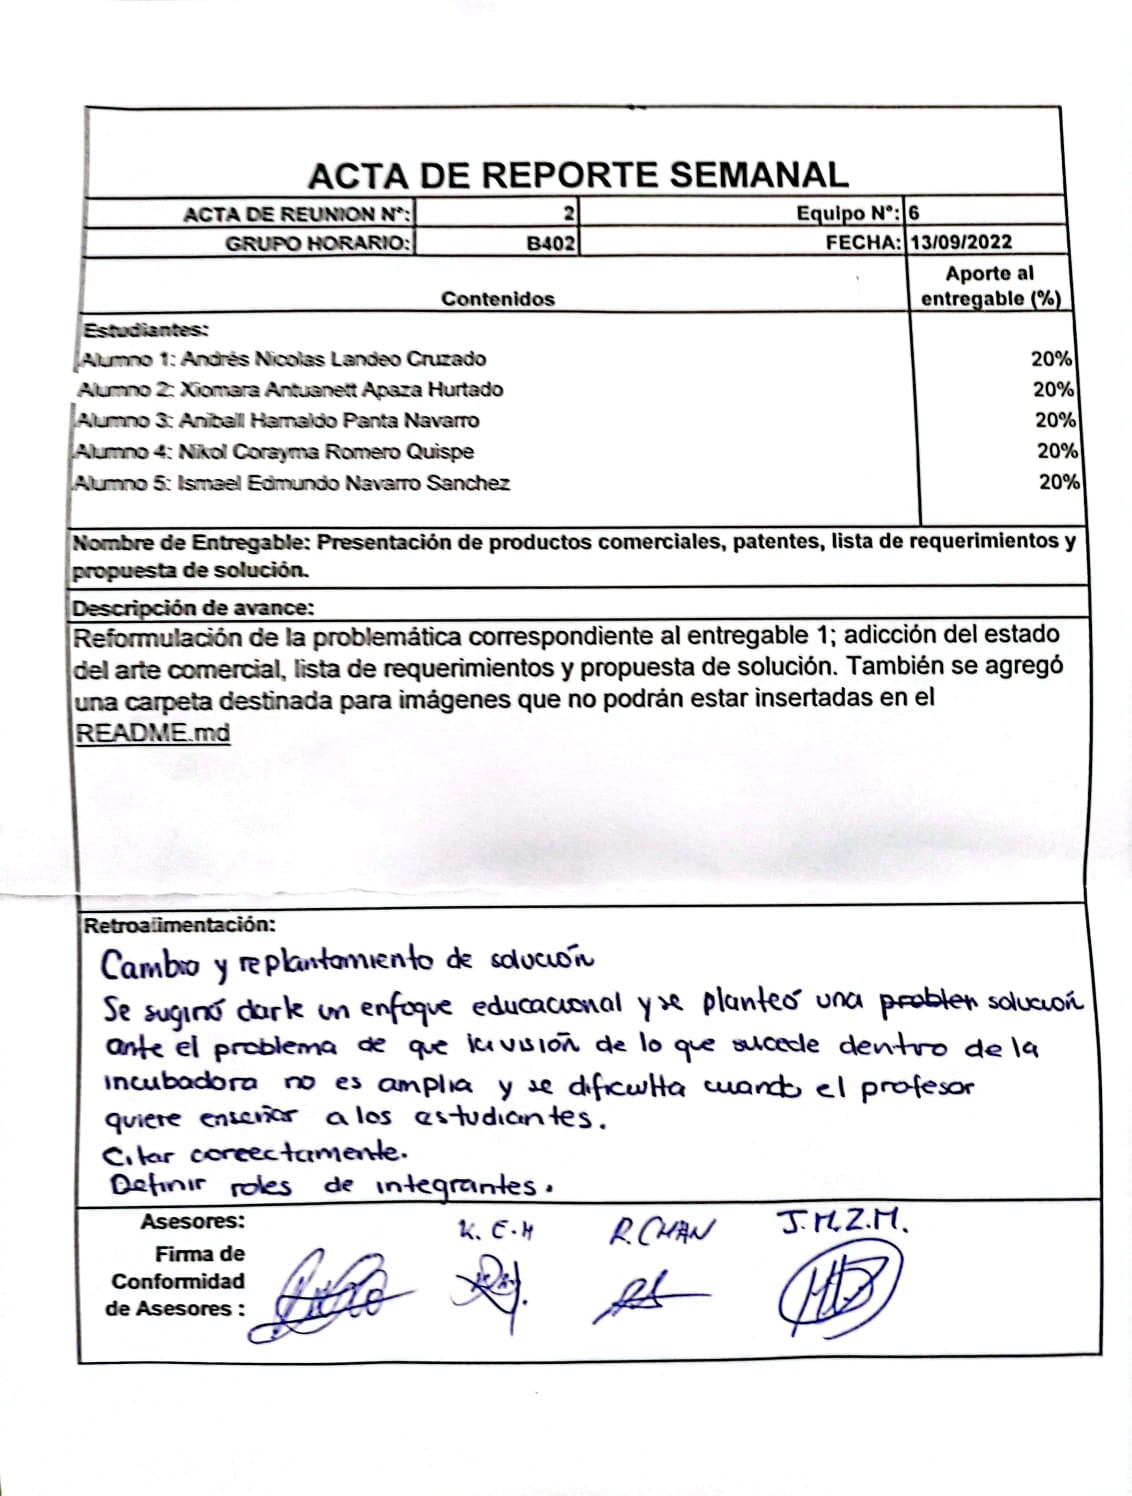 ACTA DE REPORTE SEMANAL
ACTA DE REUNION N°: 2 Equipo N°: 6
GRUPO HORARIO: B402 FECHA: 13/09/2022
Contenidos Aporte al entregable (%)
Estudiantes:
Alumno 1: Andrés Nicolas Landeo Cruzado 20%
Alumno 2: Xiomara Antuanett Apaza Hurtado 20%
Alumno 3: Aniball Harnaldo Panta Navarro 20%
Alumno 4: Nikol Corayma Romero Quispe 20%
Alumno 5: Ismael Edmundo Navarro Sanchez 20%
Nombre de Entregable: Presentación de productos comerciales, patentes, lista de requerimientos y
propuesta de solución.
Descripción de avance:
Reformulación de la problemática correspondiente al entregable 1; adicción del estado
del arte comercial, lista de requerimientos y propuesta de solución. También se agregó
una carpeta destinada para imágenes que no podrán estar insertadas en el
README.md
Retroalimentación:
Cambio y replantamiento de solución
Se sugirió darle un enfoque educacional y se planteó una problem solución
ante el problema de que la visión de lo que sucede dentro de la
incubadora no es amplia y se dificulta cuando el profesor
quiere enseñar a los estudiantes.
Citar correctamente.
Definir roles de integrantes.
Asesores: K. E. H R. CHAN J.M.Z.M.
Firma de
Conformidad
de Asesores :